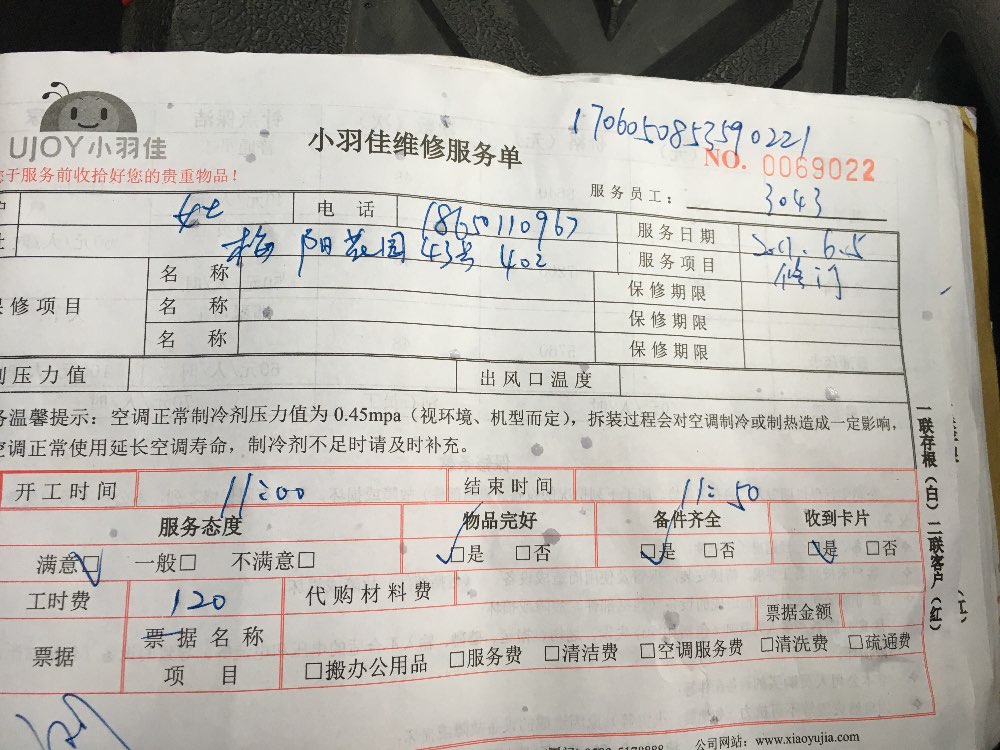 1706050853590221
UJOY小羽佳
小羽佳维修服务单
NO. 0069022
于服务前收拾好您的贵重物品！
服务员工： 3043
女士 电 话 18650110967 服务日期 2017.6.5
梅阳花园43号402 服务项目 修门
保修项目 名 称 保修期限
名 称 保修期限
名 称 保修期限
压力值 出风口温度
务温馨提示：空调正常制冷剂压力值为 0.45mpa（视环境、机型而定），拆装过程会对空调制冷或制热造成一定影响，
空调正常使用延长空调寿命，制冷剂不足时请及时补充。
开工时间 11:00 结束时间 11:50
服务态度 物品完好 备件齐全 收到卡片
满意□ 一般□ 不满意□ □是 □否 □是 □否 □是 □否
工时费 120 代购材料费
票据 票据名称 票据金额
项 目 □搬办公用品 □服务费 □清洁费 □空调服务费 □清洗费 □疏通费
公司网站：www.xiaoyujia.com
一联存根（白）二联客户（红）